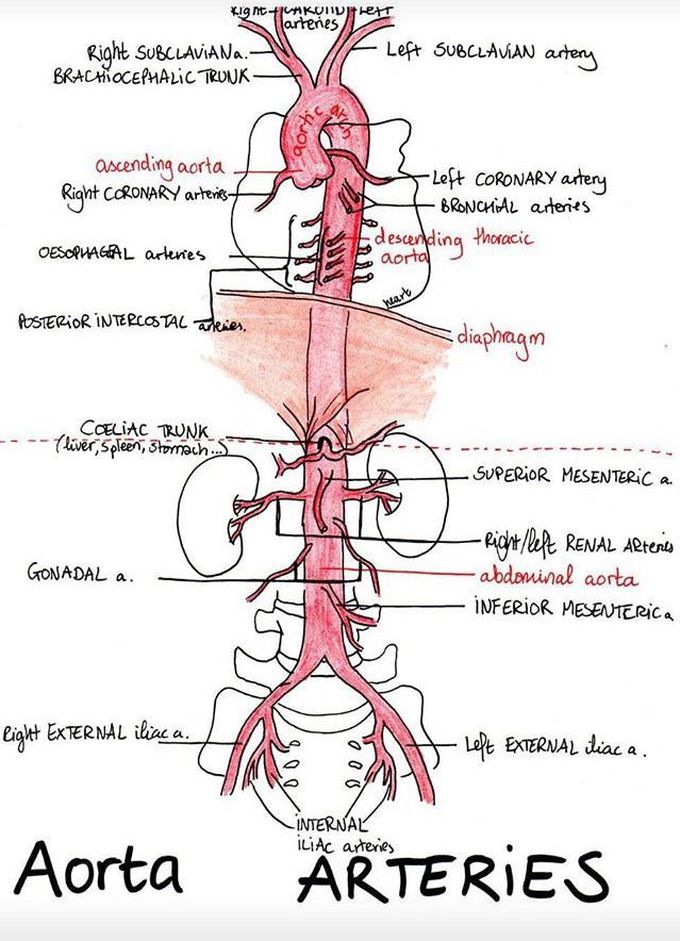 Right CAROTID Left
arteries
Right SUBCLAVIAN a.
Left SUBCLAVIAN artery
BRACHIOCEPHALIC TRUNK
aortic arch
ascending aorta
Left CORONARY artery
Right CORONARY arteries
BRONCHIAL arteries
descending thoracic
aorta
OESOPHAGEAL arteries
heart
POSTERIOR INTERCOSTAL arteries.
diaphragm
COELIAC TRUNK
(liver, spleen, stomach...)
SUPERIOR MESENTERIC a.
Right/left RENAL ARteries
GONADAL a.
abdominal aorta
INFERIOR MESENTERIC a
Right EXTERNAL iliac a.
Left EXTERNAL iliac a.
INTERNAL
iLiAc arteries
Aorta ARTERiES